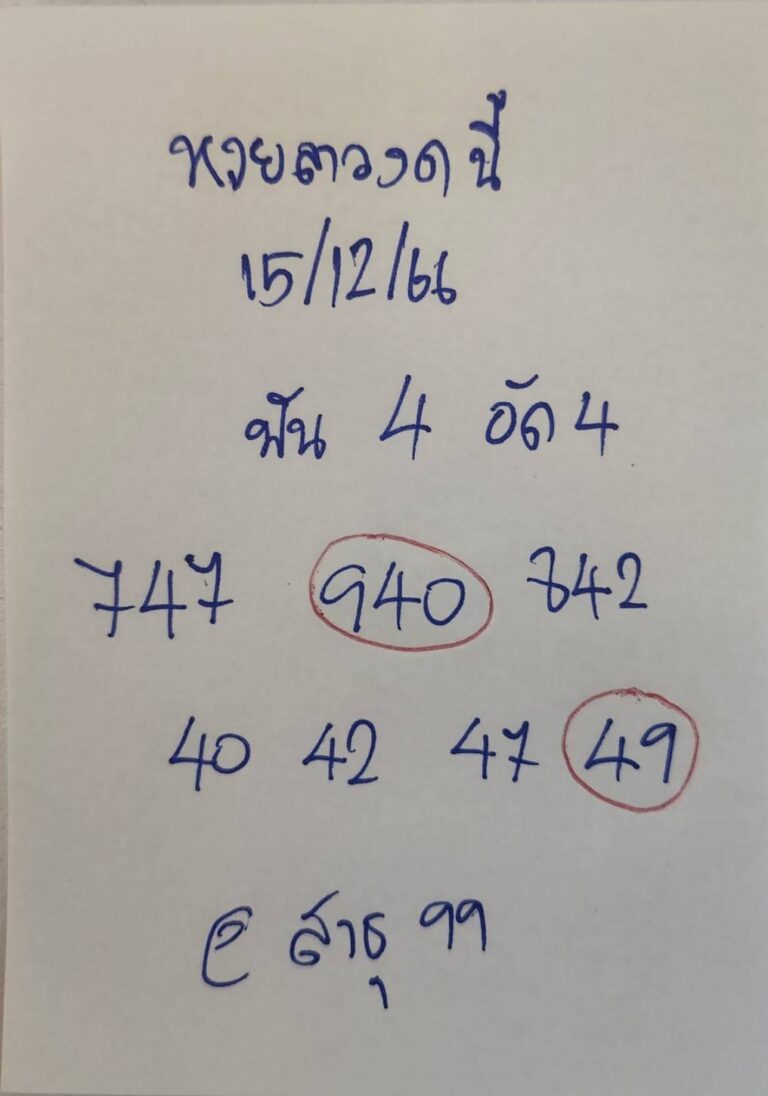 หวยลาวงวดนี้
15/12/66
ฟัน 4 อัด 4
747 940 742
40 42 47 49
@ สาธุ 99